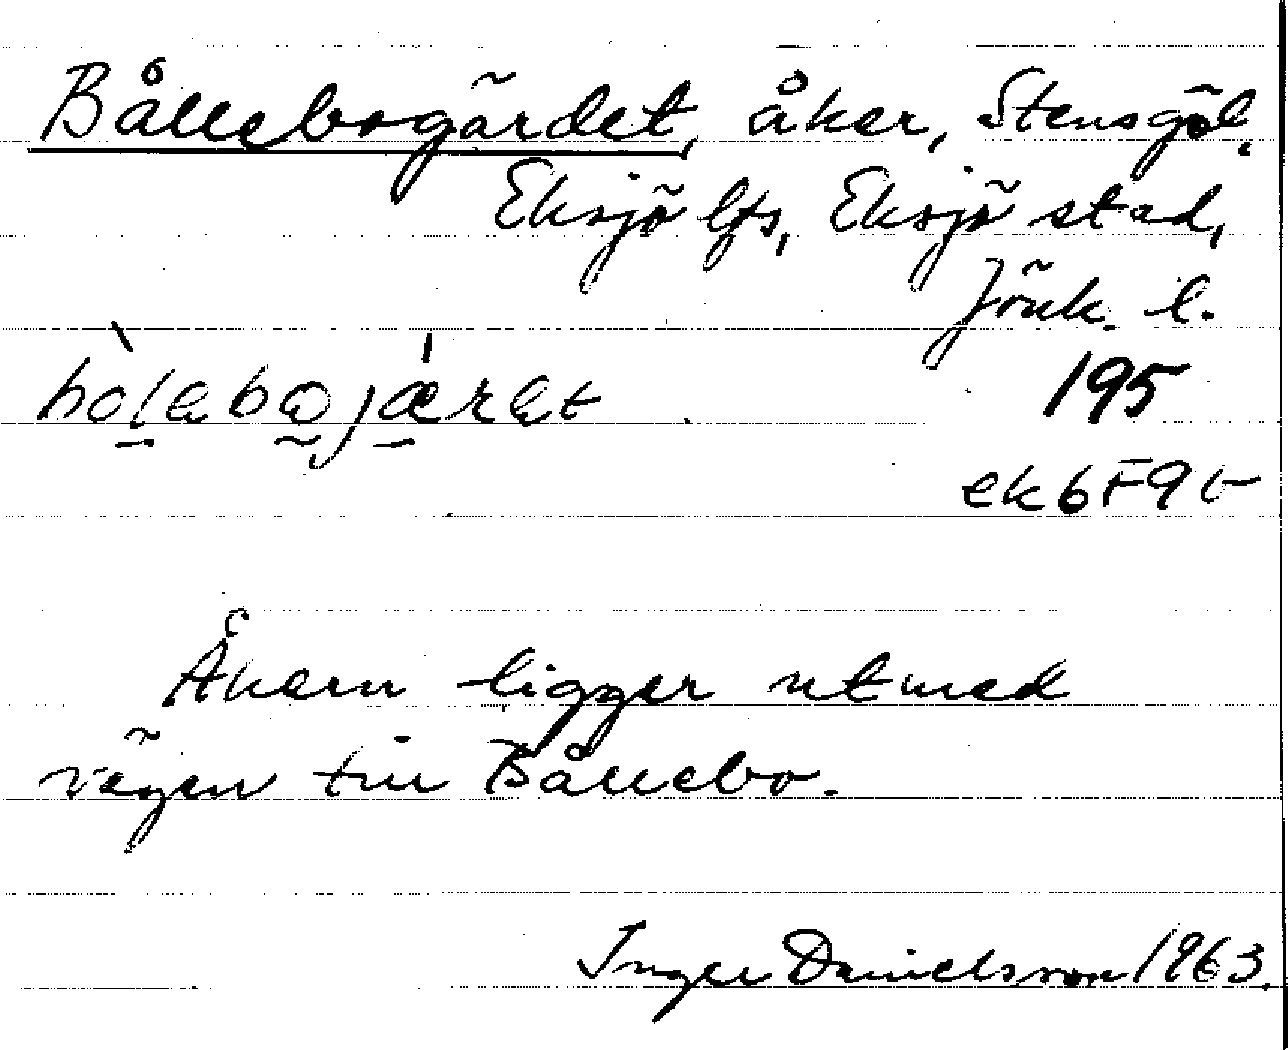 Bållebogärdet, åker, Stensgöl,
Eksjö lfs, Eksjö stad,
Jönk. l.
195
ek 6F9b
Åkern ligger utmed
vägen till Bållebo.
Inger Danielsson 1963.